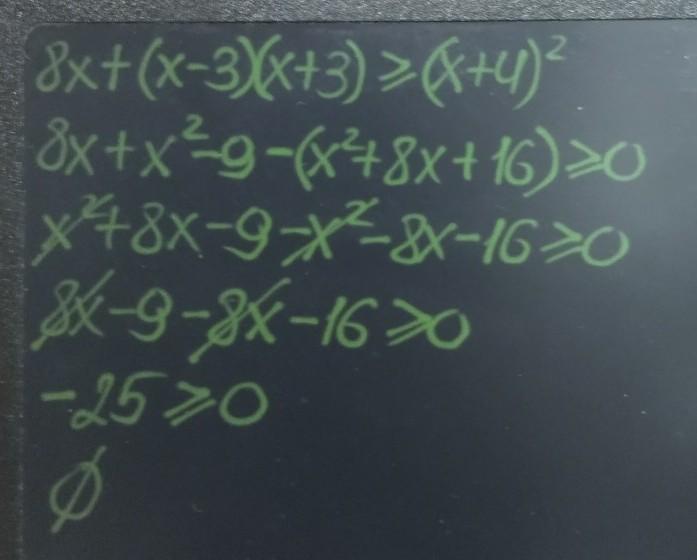 8x+(x-3)(x+3)≥(x+4)²
8x+x²-9-(x²+8x+16)≥0
x²+8x-9-x²-8x-16≥0
8x-9-8x-16≥0
-25≥0
∅